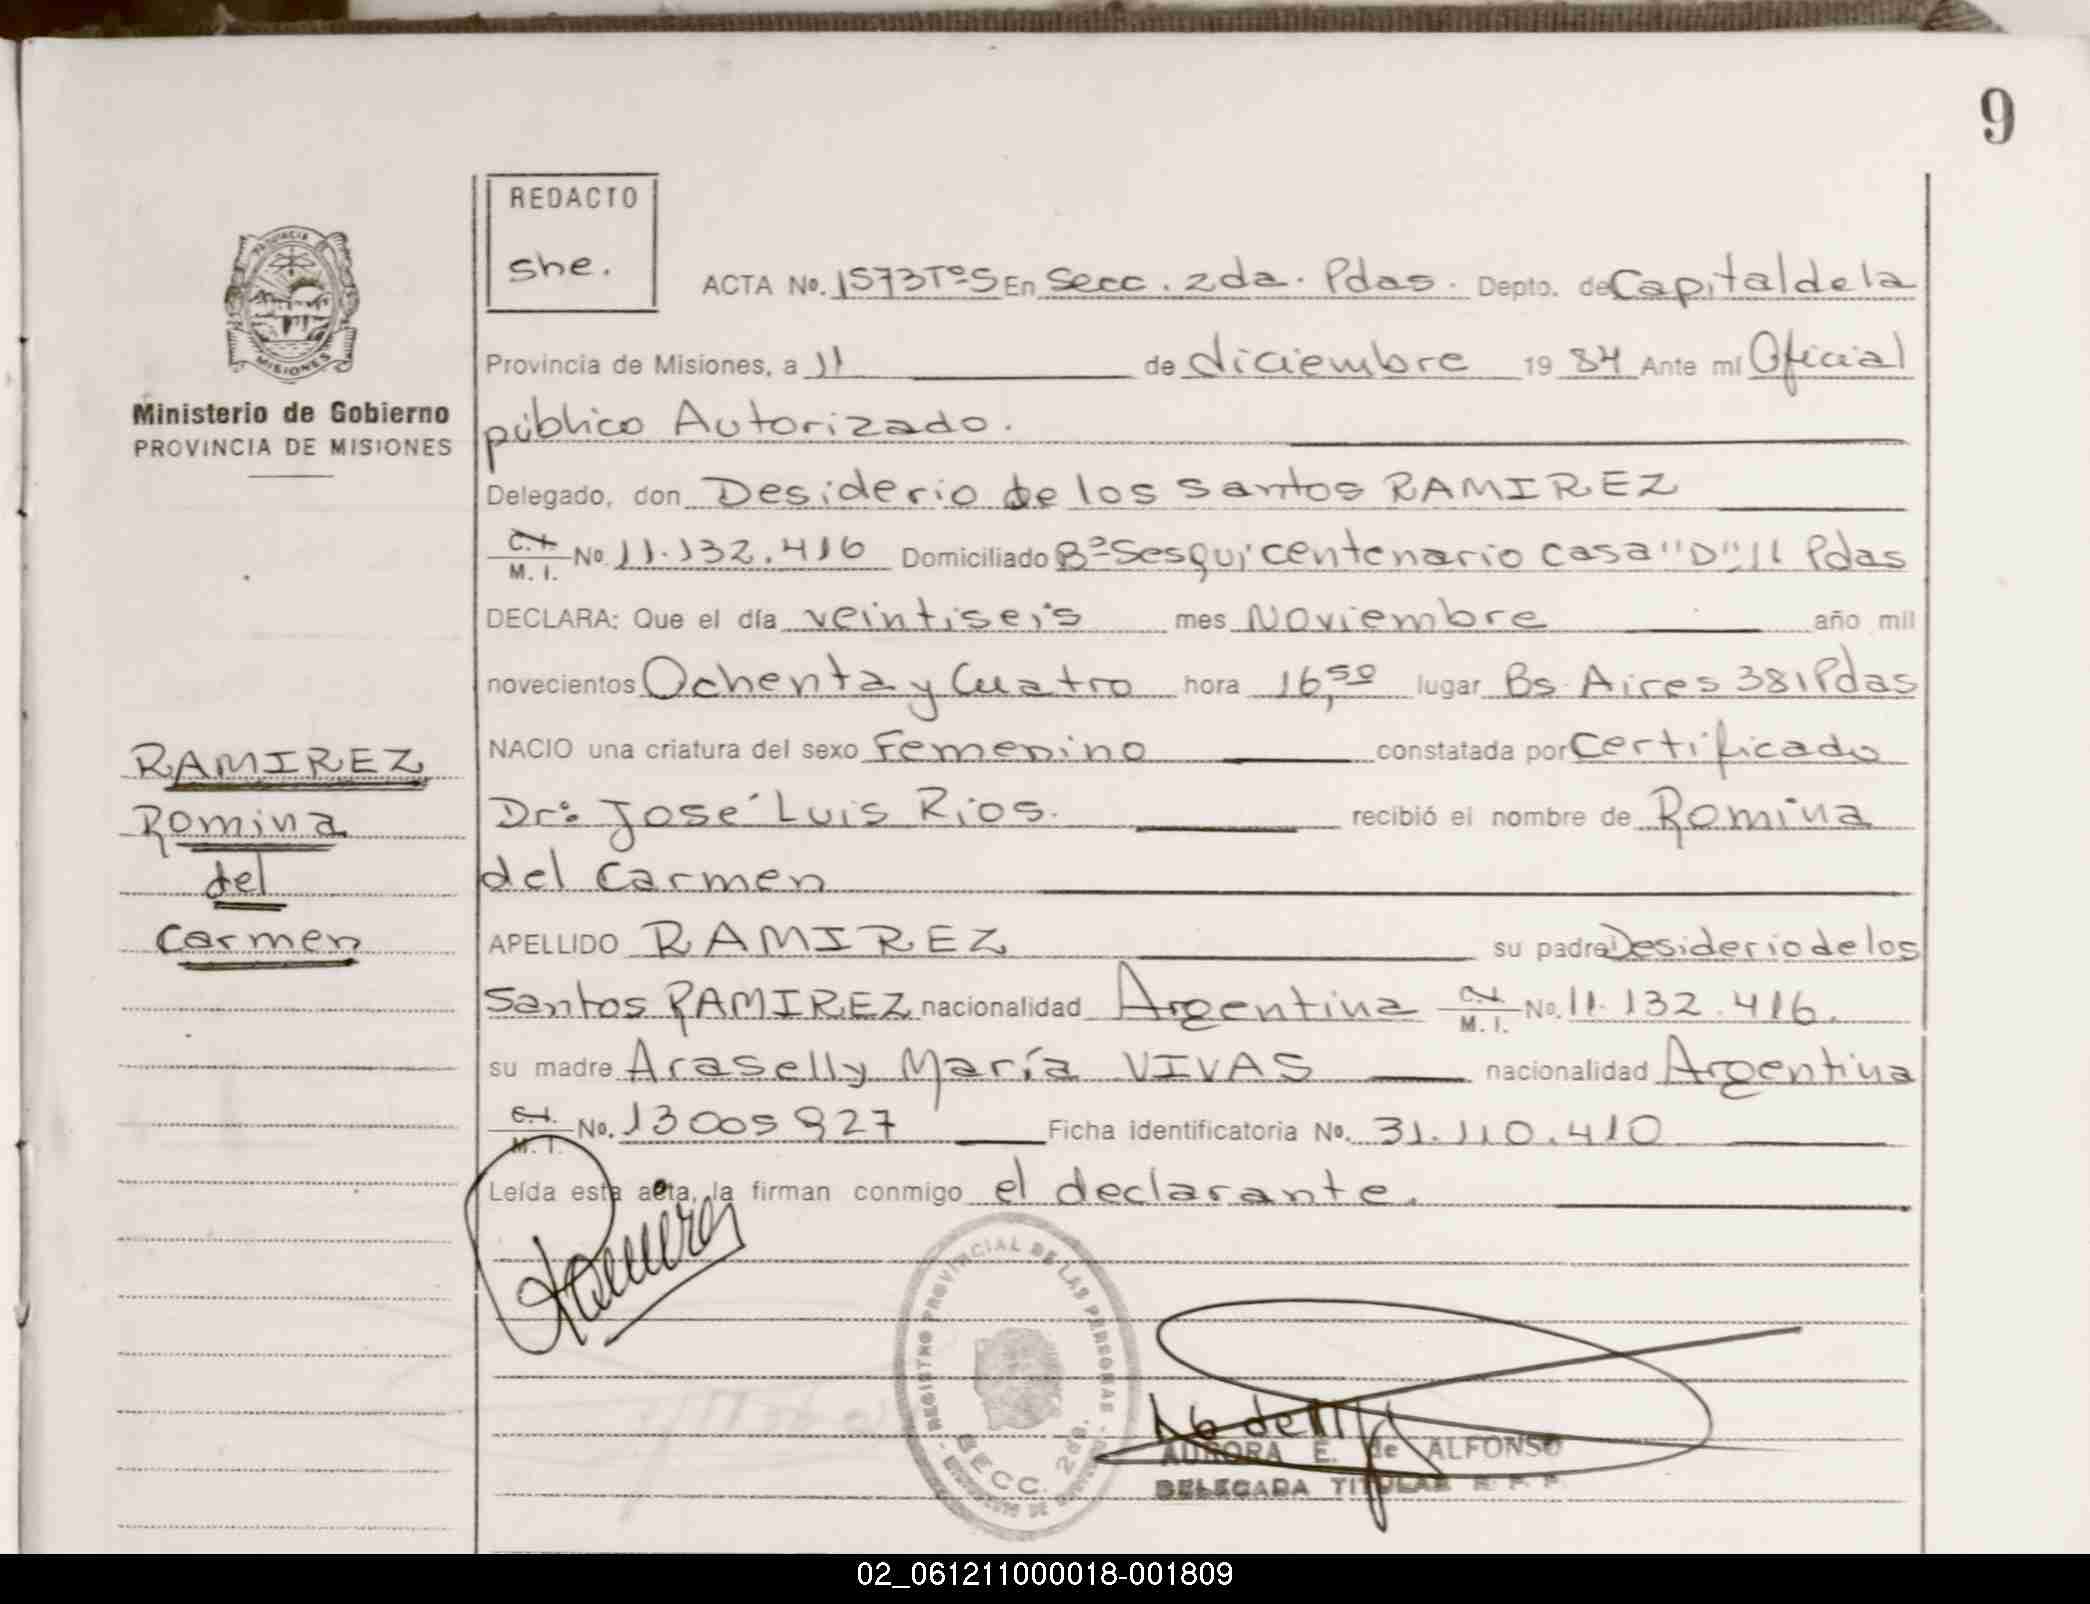 9
REDACTO
she.
ACTA No. 1573 Tº 5 En Secc. 2da. Pdas. Depto. de Capital de la
Provincia de Misiones, a 11 de diciembre 19 84 Ante mí Oficial
público Autorizado.
Delegado, don Desiderio de los Santos RAMIREZ
C.I. M. I. No 11.132.416 Domiciliado Bº Sesquicentenario casa "D" 11 Pdas
DECLARA: Que el día veintiseis mes Noviembre año mil
novecientos Ochenta y Cuatro hora 16,50 lugar Bs. Aires 381 Pdas
NACIO una criatura del sexo Femenino constatada por Certificado
Dr: José Luis Rios. recibió el nombre de Romina
del Carmen
APELLIDO RAMIREZ su padre Desiderio de los
Santos RAMIREZ nacionalidad Argentina C.I. M. I. No. 11.132.416.
su madre Araselly María VIVAS nacionalidad Argentina
C.I. M. I. No. 13005927 Ficha identificatoria No. 31.110.410
Leída esta acta, la firman conmigo el declarante.
PROVINCIA
MISIONES
Ministerio de Gobierno
PROVINCIA DE MISIONES
RAMIREZ
Romina
del
Carmen
REGISTRO PROVINCIAL DE LAS PERSONAS
SECC. 2da.
AURORA E. de ALFONSO
DELEGADA TITULAR R. P. P.
02_061211000018-001809